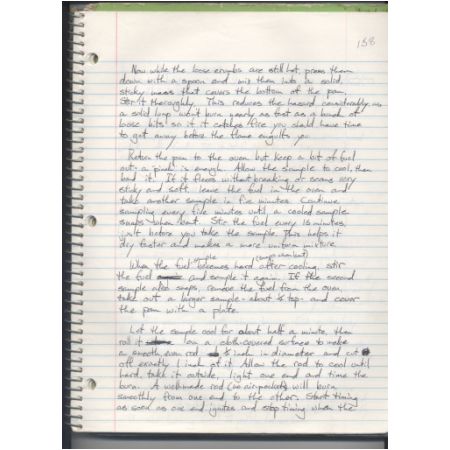 158
Now while the loose crumbs are still hot, press them
down with a spoon and mix them into a solid,
sticky mass that covers the bottom of the pan.
Stir it thoroughly. This reduces the hazard considerably as
a solid lump won't burn nearly as fast as a bunch of
loose bits so if it catches fire you should have time
to get away before the flame engulfs you.
Return the pan to the oven but keep a bit of fuel
out - a pinch is enough. Allow the sample to cool, then
bend it. If it flexes without breaking or seems very
sticky and soft, leave the fuel in the oven and
take another sample in five minutes. Continue
sampling every five minutes until a cooled sample
snaps when bent. Stir the fuel every 15 minutes,
just before you take the sample. This helps it
dry faster and makes a more uniform mixture.
When the fuel sample becomes hard after cooling, stir
the fuel and sample it again. If the second
sample also snaps, remove the fuel from the oven,
take out a larger sample - about ½ tsp - and cover
the pan with a plate.
Let the sample cool for about half a minute, then
roll it on a cloth-covered surface to make
a smooth even rod inch in diameter and cut
off exactly 1 inch of it. Allow the rod to cool until
hard, take it outside, light one end and time the
burn. A well-made rod (no air-pockets) will burn
smoothly from one end to the other. Start timing
as soon as one end ignites and stop timing when the